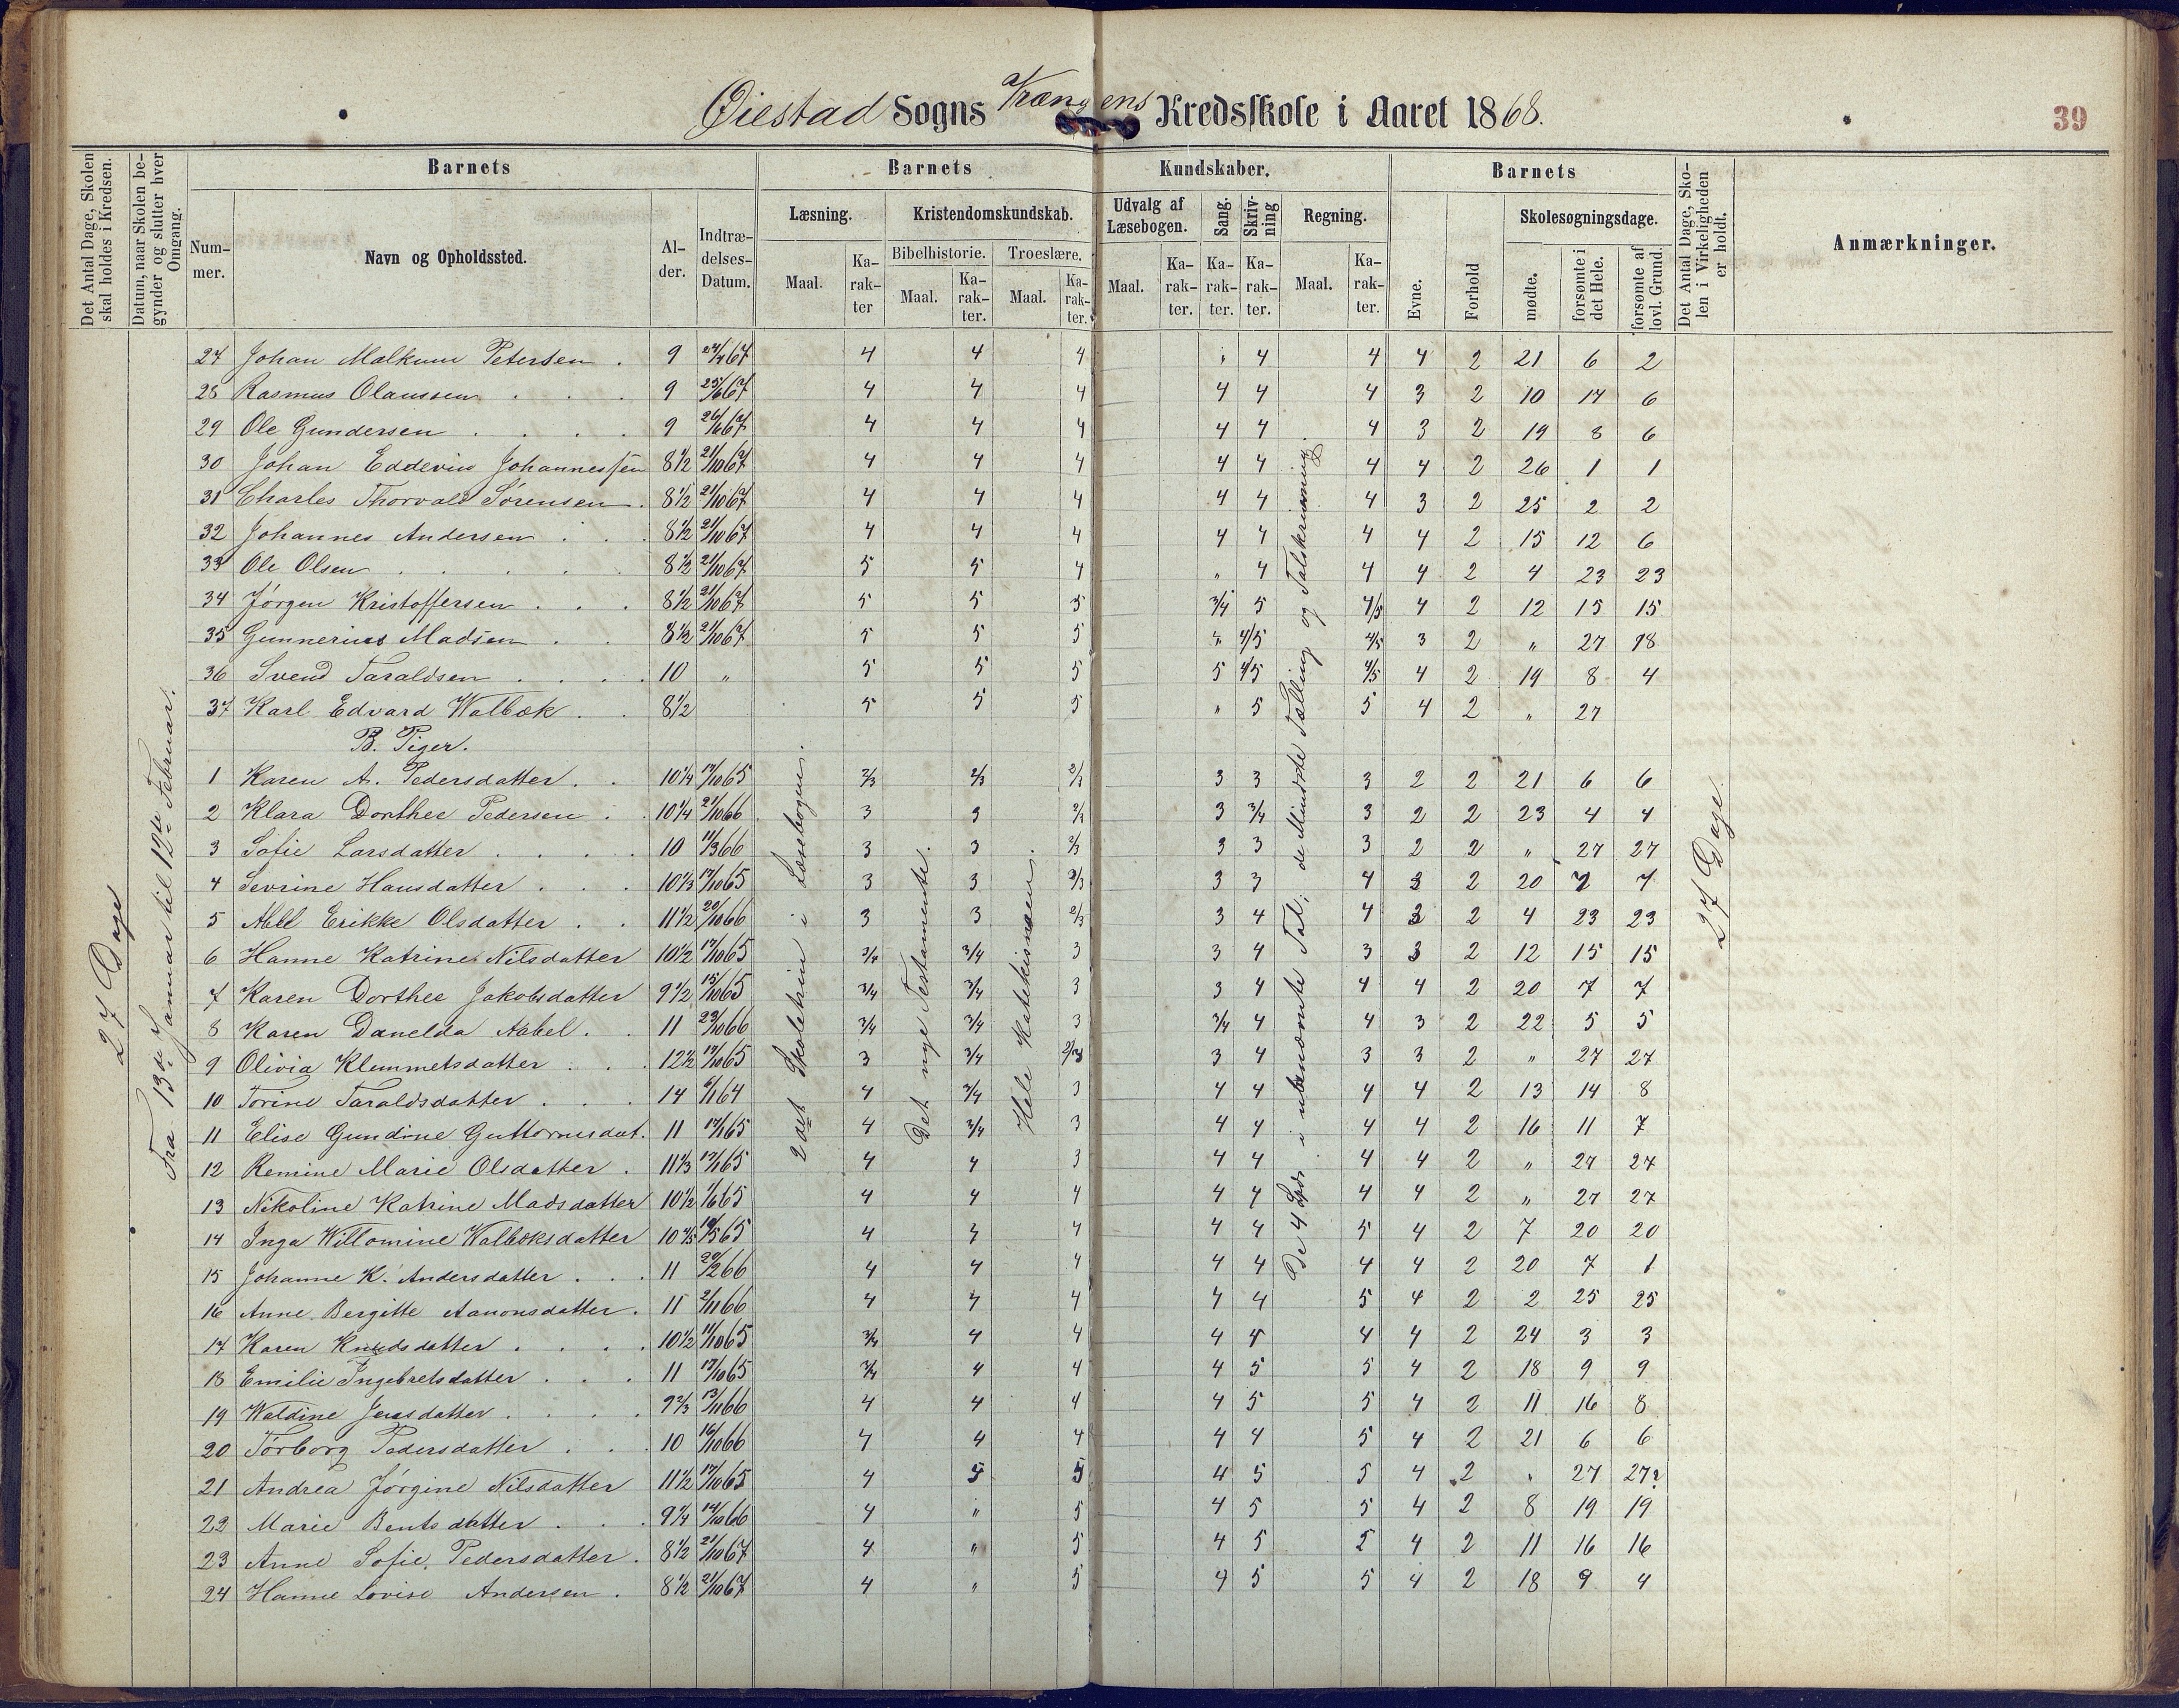 Øiestad Sogns Vrængens Kredsskole i Aaret 1868.
39
Det Antal Dage, Skolen skal holdes i Kredsen.
Datum, naar Skolen begynder og slutter hver Omgang.
Barnets
Barnets
Kundskaber.
Barnets
Det Antal Dage, Skolen i Virkeligheden er holdt.
Anmærkninger.
Nummer.
Navn og Opholdssted.
Alder.
Indtrædelses-Datum.
Læsning.
Kristendomskundskab.
Udvalg af Læsebogen.
Sang.
Skrivning
Regning.
Evne.
Forhold
Skolesøgningsdage.
Bibelhistorie.
Troeslære.
Maal.
Karakter
Maal.
Karakter.
Maal.
Karakter.
Maal.
Karakter.
Karakter.
Karakter.
Maal.
Karakter.
mødte.
forsømte i det Hele.
forsømte af lovl. Grund.
27 Dage
Fra 13de Januar til 12te Februar.
2det Skoletrin i Læsebogen.
Det nye Testamente.
Hele Katekismen.
De 4 Spec. i ubenævnte Tal; de Mindste Tælling og Talskrivning
27 Dage.
27 Johan Malkum Petersen . 9 24/4 67 4 4 4 " 4 4 4 2 21 6 2
28 Rasmus Olaussen . . . 9 25/6 67 4 4 4 4 4 4 3 2 10 17 6
29 Ole Gundersen . . . . 9 26/6 67 4 4 4 4 4 4 3 2 19 8 6
30 Johan Eddevin Johannessen 8 1/2 21/10 67 4 4 4 4 4 4 4 2 26 1 1
31 Charles Thorvald Sørensen . 8 1/2 21/10 67 4 4 4 4 4 4 3 2 25 2 2
32 Johannes Andersen . . . 8 1/2 21/10 67 4 4 4 4 4 4 4 2 15 12 6
33 Ole Olsen . . . . . 8 1/2 21/10 67 5 5 4 " 4 4 4 2 4 23 23
34 Jørgen Kristoffersen . . . 8 1/2 21/10 67 5 5 5 3/4 5 4/5 4 2 12 15 15
35 Gunnerius Madsen . . 8 1/2 21/10 67 5 5 5 " 4/5 4/5 3 2 " 27 18
36 Svend Taraldsen . . . . 10 " 5 5 5 5 4/5 4/5 4 2 19 8 4
37 Karl Edvard Walbæk . . 8 1/2 5 5 5 " 5 5 4 2 " 27
B. Piger.
1 Karen A. Pedersdatter . . 10 1/4 17/10 65 2/3 2/3 2/3 3 3 3 2 2 21 6 6
2 Klara Dorthee Pedersen . . 10 1/4 21/10 66 3 3 2/3 3 3/4 3 2 2 23 4 4
3 Sofie Larsdatter . . . . 10 11/3 66 3 3 2/3 3 3 3 2 2 " 27 27
4 Sevrine Hansdatter . . . 10 1/3 17/10 65 3 3 2/3 3 3 4 3 2 20 7 7
5 Abel Erikke Olsdatter . . 11 1/2 20/10 66 3 3 2/3 3 4 4 3 2 4 23 23
6 Hanne Katrine Nilsdatter 10 1/2 17/10 65 3/4 3/4 3 3 4 3 3 2 12 15 15
7 Karen Dorthee Jakobsdatter 9 1/2 15/10 65 3/4 3/4 3 3 4 4 4 2 20 7 7
8 Karen Danelda Aabel . . 11 23/10 66 3/4 3/4 3 3/4 4 4 3 2 22 5 5
9 Olivia Klemmetsdatter . . . 12 1/2 17/10 65 3 3/4 2/3 3 4 3 3 2 " 27 27
10 Torine Taraldsdatter . . . 14 6/1 64 4 3/4 3 4 4 4 4 2 13 14 8
11 Elise Gundine Guttormsdat. 11 17/1 65 4 3/4 3 4 4 4 4 2 16 11 7
12 Remine Marie Olsdatter . 11 1/3 17/1 65 4 4 3 4 4 4 4 2 " 27 27
13 Nikoline Katrine Madsdatter 10 1/2 1/6 65 4 4 4 4 4 4 4 2 " 27 27
14 Inga Willomine Walbæksdatter 10 4/5 19/5 65 4 4 4 4 4 5 4 2 7 20 20
15 Johanne K. Andersdatter . . . 11 20/2 66 4 4 4 4 4 4 4 2 20 7 1
16 Anne Bergitte Aanonsdatter . 11 2/11 66 4 4 4 4 4 5 4 2 2 25 25
17 Karen Knudsdatter . . . . 10 1/2 11/10 65 3/4 4 4 4 4 4 4 2 24 3 3
18 Emilie Ingebretsdatter . . . 11 17/10 65 3/4 4 4 4 5 5 4 2 18 9 9
19 Waldine Jensdatter . . . . 9 2/3 13/11 66 4 4 4 4 5 5 4 2 11 16 8
20 Torborg Pedersdatter . . . 10 16/10 66 4 4 4 4 4 5 4 2 21 6 6
21 Andrea Jørgine Nilsdatter 11 1/2 17/10 65 4 5 5 4 5 5 4 2 " 27 27?
22 Marie Bentsdatter . . . 9 1/4 14/10 66 4 " 5 4 5 5 4 2 8 19 19
23 Anne Sofie Pedersdatter . 8 1/2 21/10 67 4 " 5 4 5 5 4 2 11 16 16
24 Hanne Lovise Andersen . 8 1/2 21/10 67 4 " 5 4 5 5 4 2 18 9 4